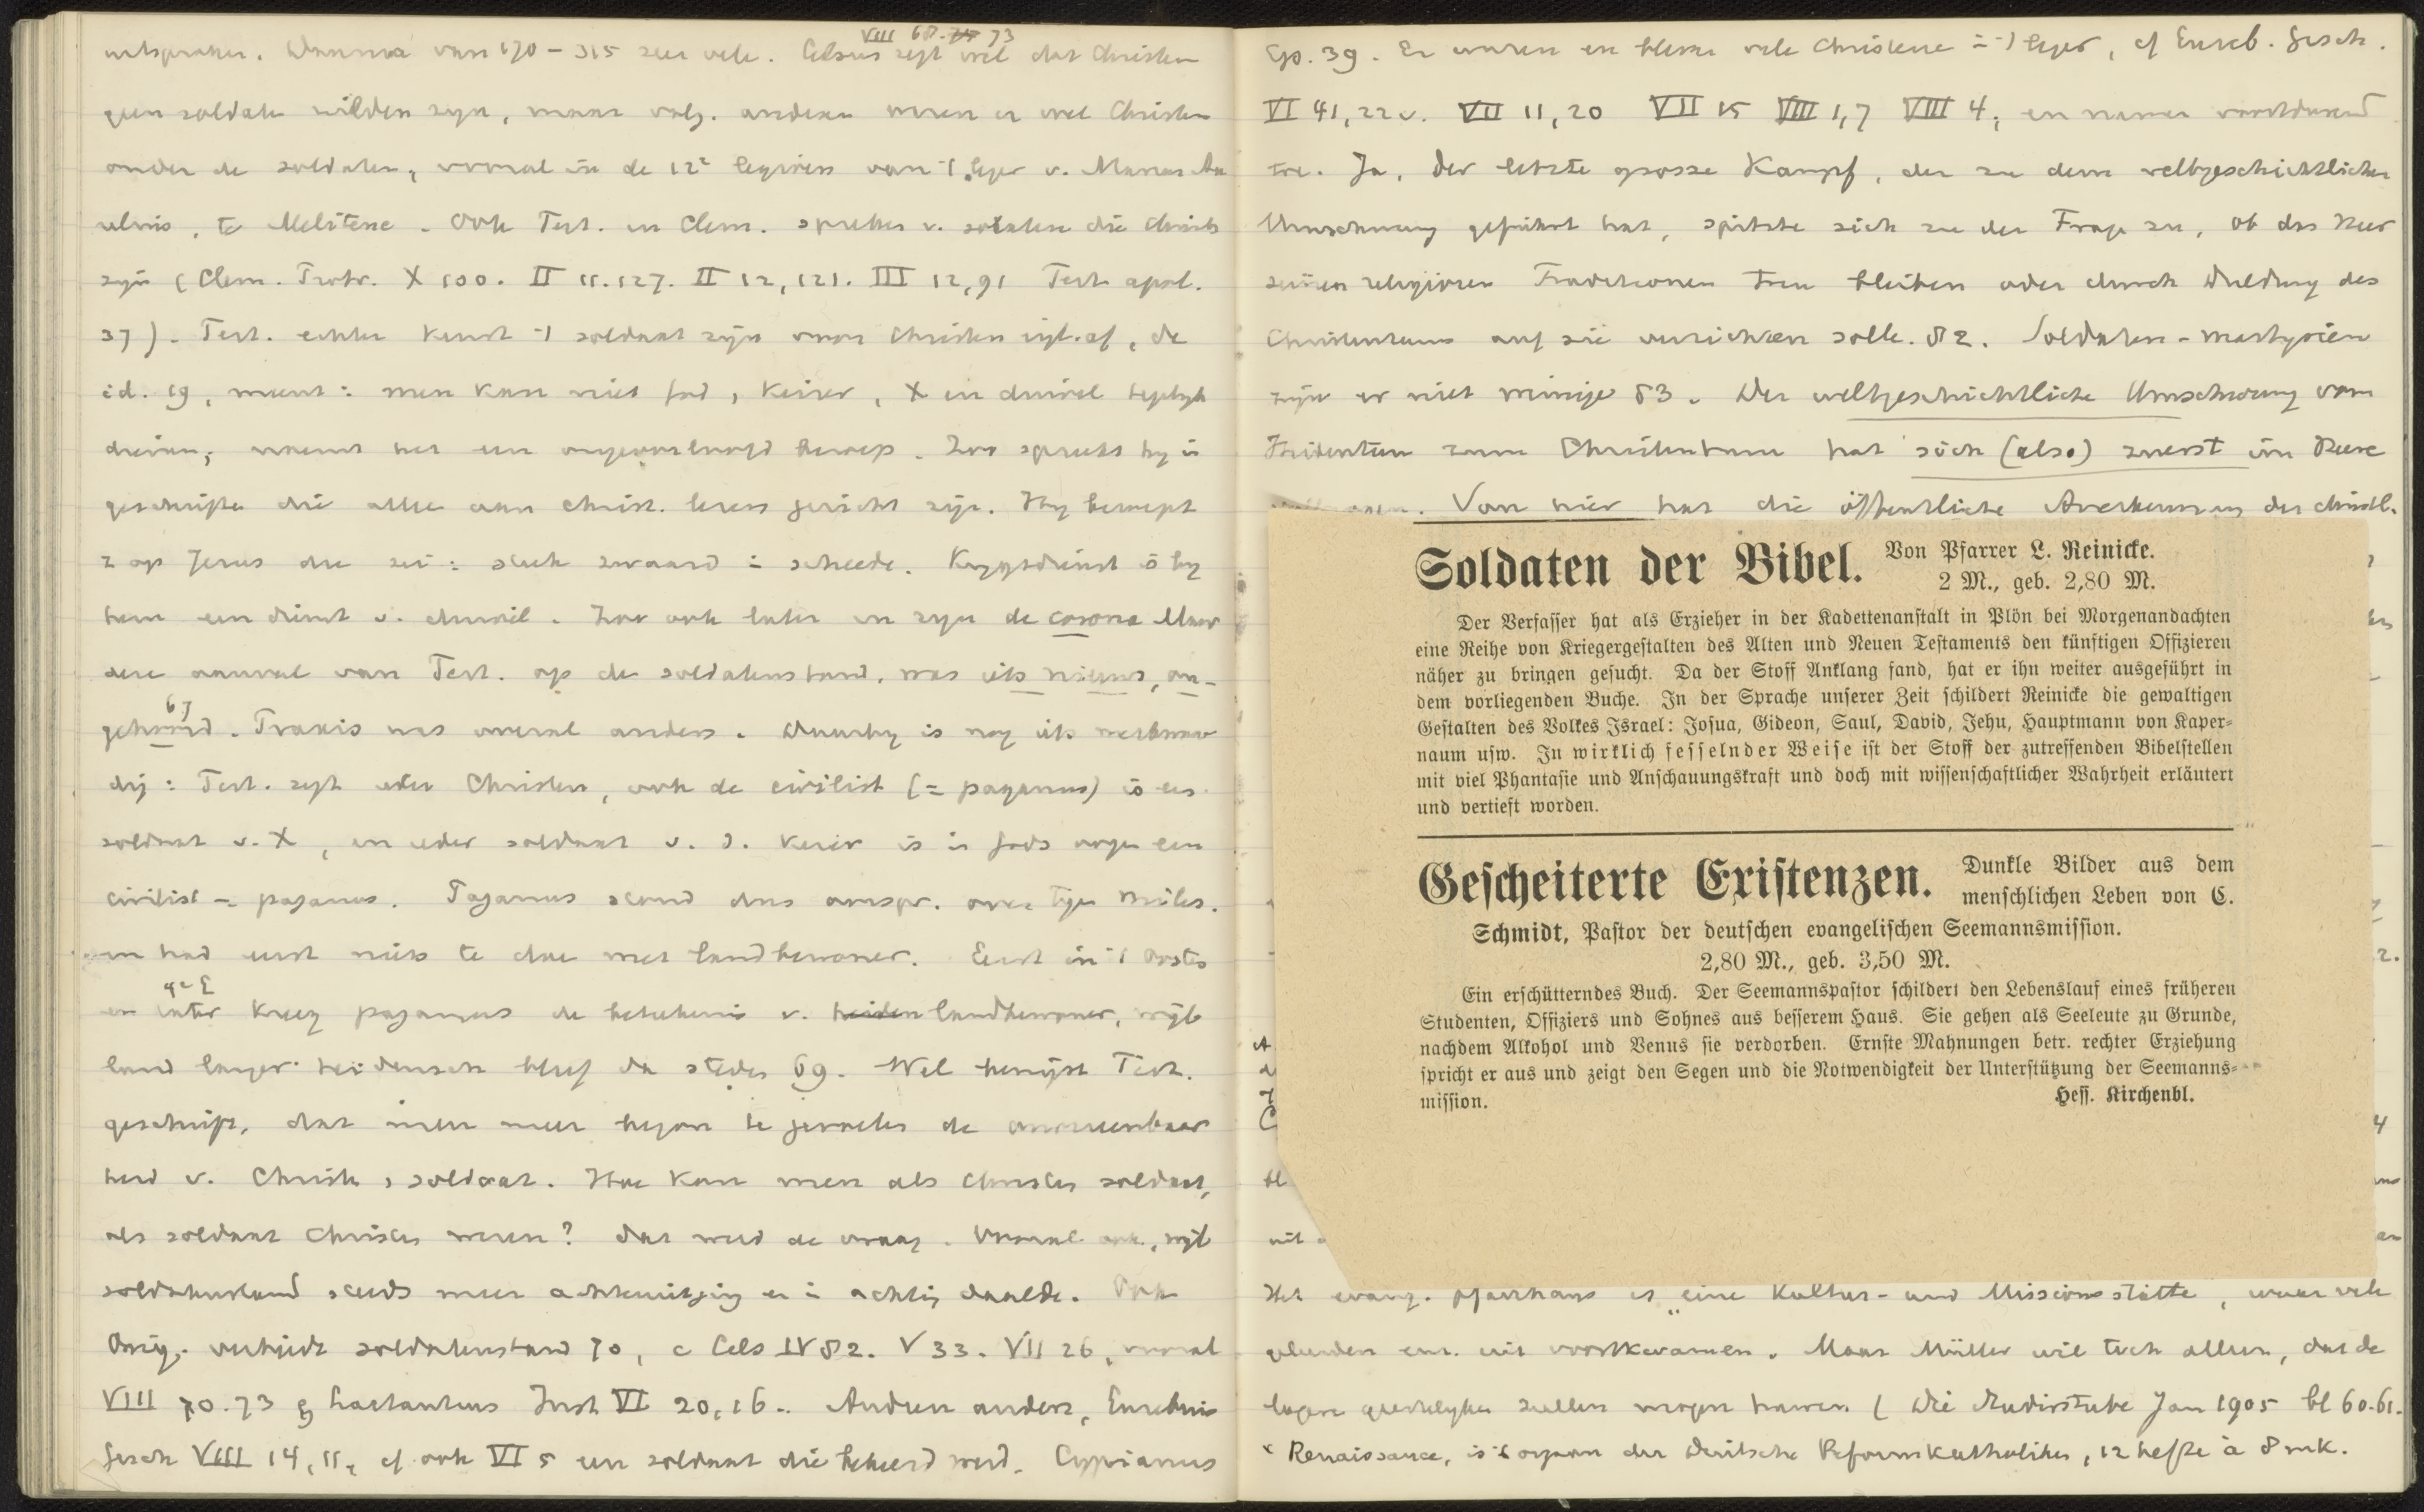 VIII 68. 73
van 170 – 315 zeer vele. Celsus zegt wel dat Christen
geen soldaten wilden zijn, maar volg. anderen waren er veel Christen
onder de soldaten, vooral in de 12e legioen van 't leger v. Marcus Au
relius, te Melitene. Ook Tert. en Clem. spreken v. soldaten die Christ.
zijn (Clem. Protr. X 100. II 11.127. II 12,121. III 12,91 Tert. apol.
37). Tert. echter keurt 't soldaat zijn voor Christen af, de
id. 19, meent: men kan niet God, Keizer, X en duivel tegelijk
dienen, noemt het een ongeoorloofd beroep. Zoo spreekt hij in
geschriften die alle aan Christ. lezers gericht zijn. Hij beroept
z op Jezus die zei: steek zwaard in scheede. Krijgsdienst is bij
hem een dienst v. duivel. Zoo ook later in zijn de corona. Maar
deze aanval van Tert. op de soldatenstand, was iets nieuws, on-
67
gehoord. Praxis was overal anders. Daarbij is nog iets merkwaar
dig: Tert. zegt ieder Christen, ook de civilist (= paganus) is een
soldaat v. X, en ieder soldaat v. d. keizer is in Gods oogen een
civilist = paganus. Paganus stond dus oorspr. over tegen miles.
en had eerst niets te doen met landbewoner. Eerst in 't Oosten
4e E
en later kreeg paganus de betekenis v. heiden landbewoner, wijl
land langer heidensch bleef dan steden 69. Wel bewijst Tert.
geschrift, dat men meer begon te gevoelen de onvereenbaar
heid v. Christen, soldaat. Hoe kan men als Christen soldaat,
als soldaat Christen wezen? Dat werd de vraag. Vooral ook, wijl
soldatenstand steeds meer achteruitging en in achting daalde. Ook
Orig. verbiedt soldatenstand 70, c Cels IV 82. V 33. VII 26, vooral
VIII 70.73 Lactantius Inst VI 20,16. Anderen anders, Eusebius
Gesch VIII 14,11, cf ook VI 5 een soldaat die bekeerd werd. Cyprianus
Ep. 39. Er waren en bleven vele Christenen in 't leger, cf Euseb. Gesch.
VI 41,22v. VII 11,20 VII 15 VIII 1,7 VIII 4, en namen voortdurend
toe. Ja, der letzte grosse Kampf, der zu dem weltgeschichtlichen
Umschwung geführt hat, spitzte sich zu der Frage zu, ob das Heer
seinen religiösen Traditionen treu bleiben oder durch Duldung des
Christentums auf sie verzichten solle. 82. Soldaten-martyrien
zijn er niet weinige 83. Der weltgeschichtliche Umschwung vom
Heidentum zum Christentum hat sich (also) zuerst im Heere
Von hier hat die öffentliche Anerkennung der christl.
Soldaten der Bibel. Von Pfarrer L. Reinicke.
2 M., geb. 2,80 M.
Der Verfasser hat als Erzieher in der Kadettenanstalt in Plön bei Morgenandachten
eine Reihe von Kriegergestalten des Alten und Neuen Testaments den künftigen Offizieren
näher zu bringen gesucht. Da der Stoff Anklang fand, hat er ihn weiter ausgeführt in
dem vorliegenden Buche. In der Sprache unserer Zeit schildert Reinicke die gewaltigen
Gestalten des Volkes Israel: Josua, Gideon, Saul, David, Jehu, Hauptmann von Kaper-
naum usw. In wirklich fesselnder Weise ist der Stoff der zutreffenden Bibelstellen
mit viel Phantasie und Anschauungskraft und doch mit wissenschaftlicher Wahrheit erläutert
und vertieft worden.
Gescheiterte Existenzen. Dunkle Bilder aus dem
menschlichen Leben von C.
Schmidt, Pastor der deutschen evangelischen Seemannsmission.
2,80 M., geb. 3,50 M.
Ein erschütterndes Buch. Der Seemannspastor schildert den Lebenslauf eines früheren
Studenten, Offiziers und Sohnes aus besserem Haus. Sie gehen als Seeleute zu Grunde,
nachdem Alkohol und Venus sie verdorben. Ernste Mahnungen betr. rechter Erziehung
spricht er aus und zeigt den Segen und die Notwendigkeit der Unterstützung der Seemanns-
mission. Hess. Kirchenbl.
Het evang. pfarrhaus is „eine Kultur- und Missionsstätte, waar vele
geleerden enz. uit voortkwamen. Maar Müller wil toch alleen, dat de
lagere geestelijken zullen mogen trouwen (Die Studierstube Jan 1905 bl 60.61.
x Renaissance, is 't orgaan der Deutsche Reformkatholiken, 12 hefte à 8 mk.